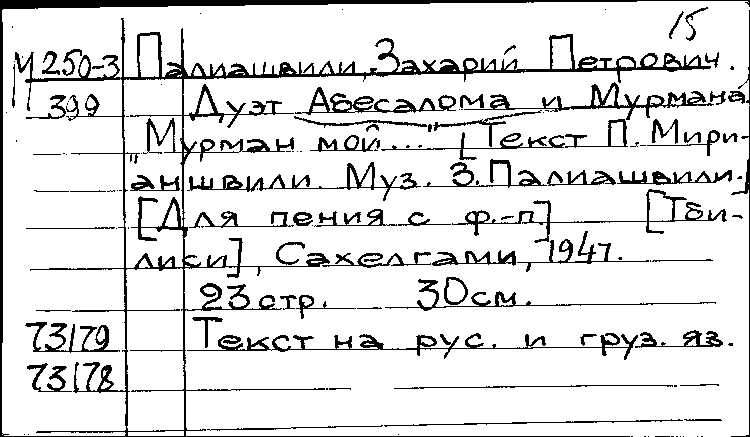 15
М 250-3 Палиашвили, Захарий Петрович.
399 Дуэт Абесалома и Мурмана
"Мурман мой..." [Текст П. Мири-
аншвили. Муз. З. Палиашвили.]
[Для пения с ф.-п.] [Тби-
лиси], Сахелгами, 1947.
23 стр. 30 см.
73179 Текст на рус. и груз. яз.
73178